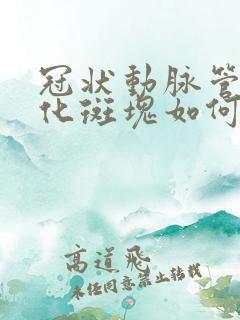 冠状動脉管
化斑塊如何
高道飛
未经同意禁止转载